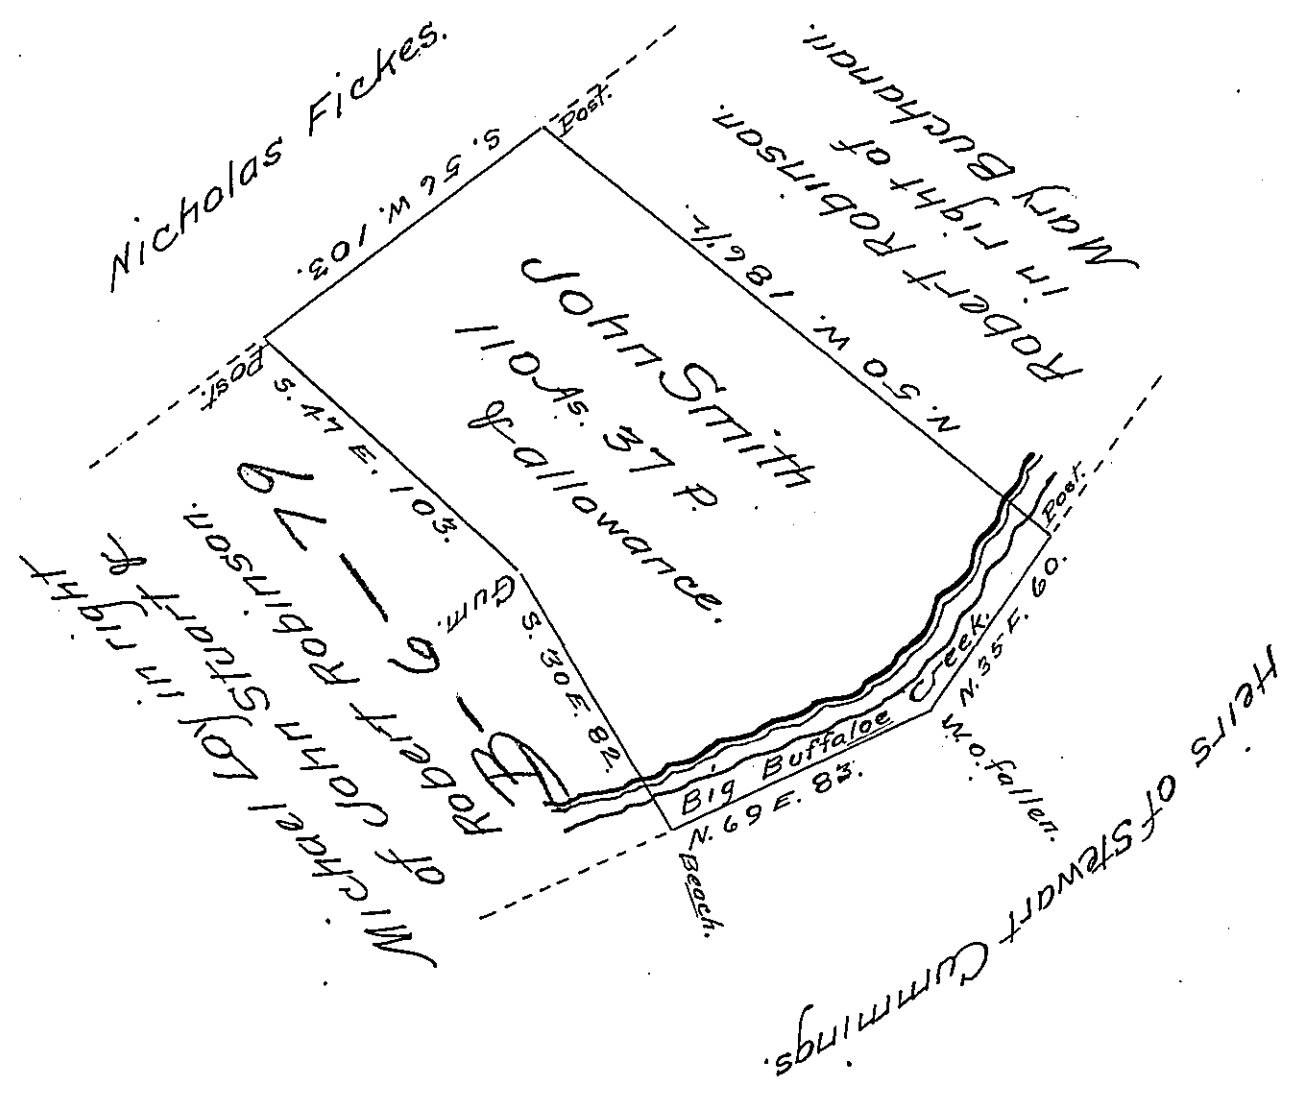 Nicholas Fickes.
S. 56 W. 103.
Post.
Robert Robinson.
in right of
Mary Buchanan.
N. 50 W. 186 1/2.
John Smith
110 As. 37 P.
& allowance.
Post.
S. 47 E. 103.
Gum.
S. 30 E. 82.
B - 6 - 79
Michael Loy in right
of John Stuart &
Robert Robinson.
Big Buffaloe Creek.
N. 69 E. 83.
Beach.
W. O. fallen.
N. 35 E. 60.
Post.
Heirs of Stewart Cummings.